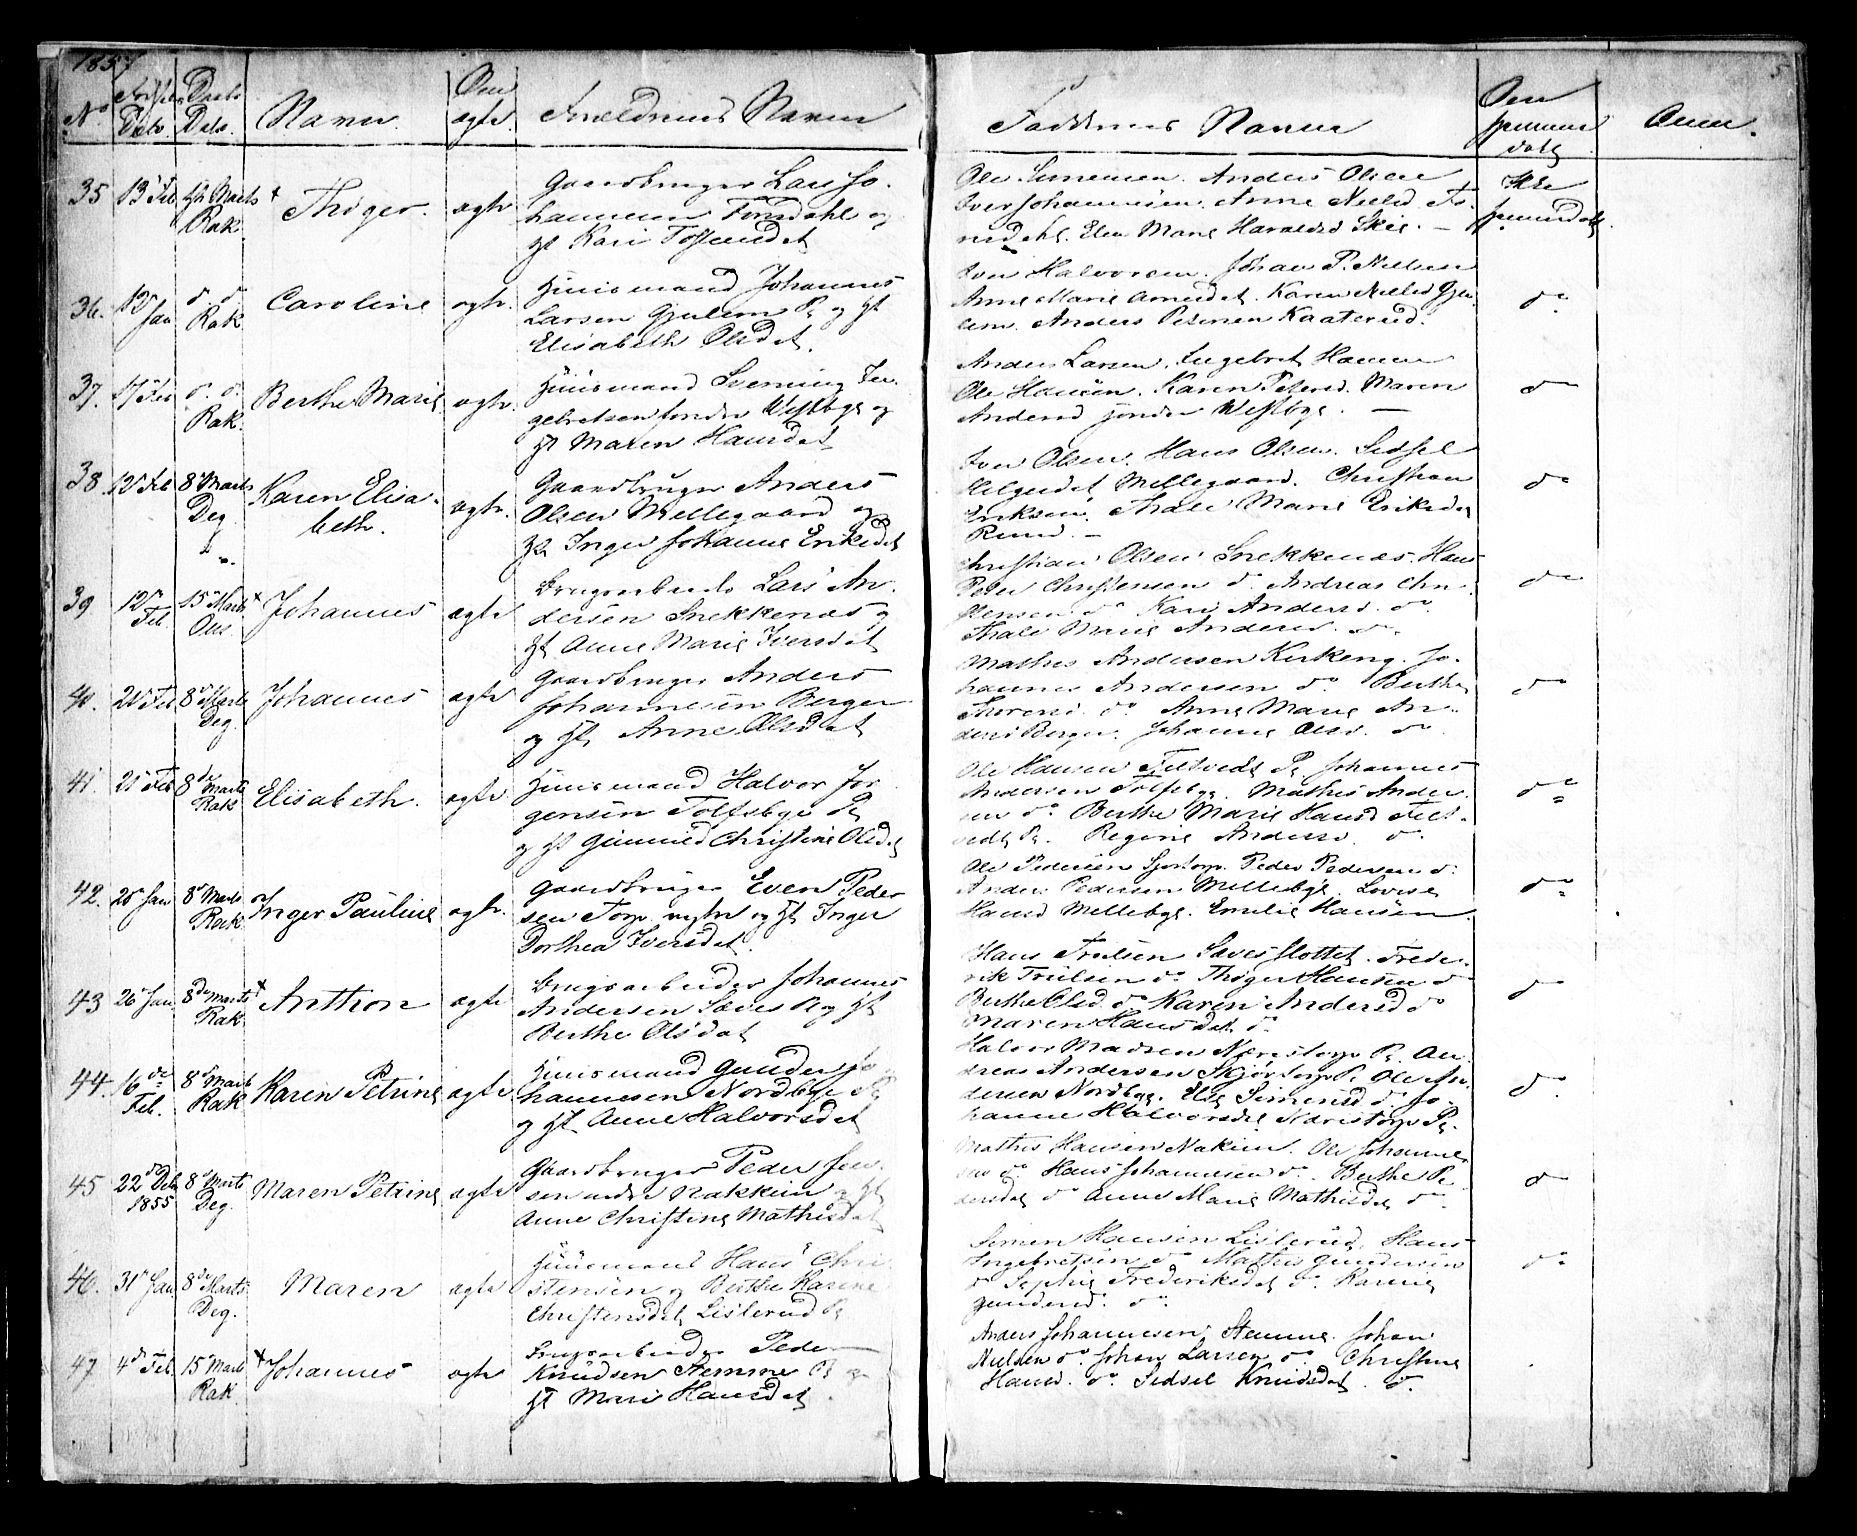 1857
5
No
Fødsels Dato.
Daabs Dato.
Navn.
Om ægte.
Forældrenes Navne
Faddernes Navne
Om hjemme døbt
Anm.
35 13 Feb 1st Marts Rak + Thøger. ægte
Gaardbruger Lars Jo-
hannesen Fonsdahl og
H Kari Tostensdat
Ole Simensen. Anders Olsen
Iver Johannesen. Anne Nielsd. Fo-
nsdahl. Elen Marie Haraldsd Skie. —
Ikke hjemmedøbt.
36. 13 Jan do do Rak Caroline ægte.
Huusmand Johannes
Larsen Gjulem Pl og H
Elisabeth Olsdat.
Iver Halvorsen. Johan P. Nielsen
Anne Marie Arnesdat. Karen Nielsd Gju-
lem. Anders Petersen Kaaterud.
do
37. 17 Feb do. do. Rak. Berthe Marie ægte.
Huusmand Svenning In-
gebretsen søndre Westbye og
H Maren Hansdat
Anders Larsen. Ingebret Hansen
Ole Hansen. Karen Petersd. Maren
Andersd søndre Westbye. —
do
38. 12 Feb 8 Marts Deg Karen Elisa-
beth. ægte.
Gaardbruger Anders
Olsen Mellegaard og
H Inger Johanne Eriksdat
Iver Olsen. Hans Olsen. Sidsel
Helgesdat Mellegaard. Christian
Eriksen. Thale Marie Eriksdat
Rund. —
do
39 12 Feb. 15 Marts Ons + Johannes ægte
Brugsarbeider Lars An-
dersen Snekkenæs og
H Anne Marie Iversdat
Christian Olsen Snekkenæs. Hans
Peter Christensen do Andreas Chri-
stensen do Kari Andersd. do.
Thale Marie Andersd. do.
do
40. 20 Feb 8 Marts Deg Johannes ægte
Gaardbruger Anders
Johannesen Berger
og H Anne Olsdat
Mathis Andersen Kirkeng. Jo-
hannes Andersen do. Berthe
Thoresd. do. Anne Marie An-
dersd Berger. Johanne Olsd. do.
do
41. 21 Feb 8de Marts Rak Elisabeth. ægte
Huusmand Halvor Jør
gensen Tolfsbye Pl
og H Gunnild Christine Olsdat
Ole Hansen Feltvedt Pl Johannes
Andersen Tolfsbye. Mathis Ander-
sen do Berthe Marie Hansd Felt-
vedt Pl. Regine Andersd. do.
do
42. 20 Jan 8 Marts Rak Inger Pauline ægte.
Gaardbruger Even Peder
sen Torp og H Inger
Dorthea Iversdat.
Ole Pedersen Torp. Peder Pedersen do.
Anders Pedersen Mellebye. Lovise
Hansd Mellebye. Emilie Hansen.
do
43 26 Jan. 8de Marts Rak + Anthon ægte
Brugsarbeider Johannes
Andersen og H
Berthe Olsdat
Hans Trulsen Frede-
rik Trulsen do. Thøger Hansen do
Berthe Olsd do Karen Andersd do
Maren Hansdat do.
do
44. 16de Feb. 8 Marts Rak Karen Petrine ægte
Huusmand Gunder Jo-
hannesen Nordbye Pl
og H Anne Halvorsdat
Halvor Madsen Næristorp Pl. An-
dreas Andersen Skjørtorp Pl. Ole An-
dersen Nordbye. Else Simensd do Jo-
hanne Halvorsdat Næristorp Pl.
do.
45 22 Deb 1855 8 Marts Deg. Maren Petrine ægte
Gaardbruger Peder Jen-
sen nedre Nakkim og H
Anne Christine Mathisdat
Mathis Hansen Nakim. Ole Johannes-
sen do. Hans Johannesen do. Berthe Pe-
dersdat do Anne Marie Mathisdat do.
do
46. 31 Jan 8de Marts Deg. Maren ægte
Huusmand Hans Chri
stensen og Berthe Karine
Christensdat Lislerud Pl
Simen Hansen Lislerud. Hans
Ingebretsen do Mathis Gundersen
do Sophie Frederiksdat do. Karine
Gundersd. do.
do
47. 4de Feb. 15 Marts Rak + Johannes ægte
Brugsarbeider Peder
Knudsen Stemme Pl og
H Mari Hansdat.
Anders Johannesen, Stemme. Johan
Nielsen do. Johan Larsen do. Christine
Hansd. do. Sidsel Knudsdat. do.